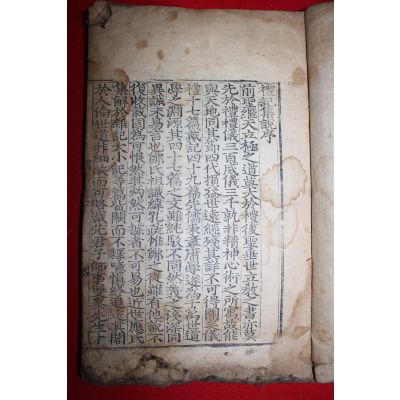 禮記集說序
前聖繼天立極之道莫大於禮後聖垂世立教之書亦莫
先於禮禮儀三百威儀三千孰非精神心術之所寓故能
與天地同其節四代損益世遠經殘其詳不可得聞矣儀
禮十七篇戴記四十九篇先儒表章庸學遂爲千萬世道
學之淵源其四十七篇之文雖純駁不同然義之淺深同
異誠未易言也鄭氏祖讖緯孔疏惟鄭之從雖有他說不
復收載固爲可恨然其灼然可據者不可易也近世應氏
集解於雜記大小記等篇皆闕而不釋噫愼終追遠其關
於人倫世道非細故而可略哉先君子師事雙峯先生十